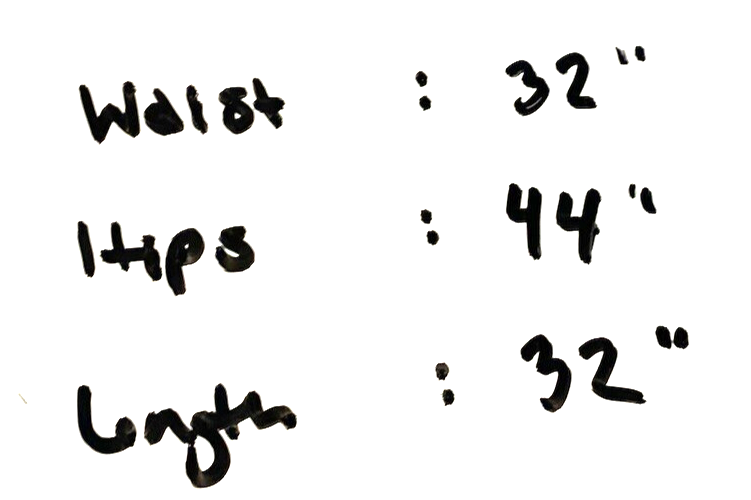 Waist : 32"
Hips : 44"
Length : 32"